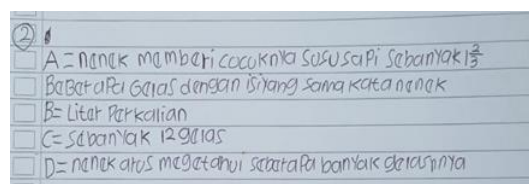 ②
A = nenek memberi cocoknya susu sapi sebanyak 1 2/3
Beberapa Gelas dengan isi yang sama kata nenek
B = Liter Perkalian
C = sebanyak 12 gelas
D = nenek arus megetahui seberapa banyak gelasnya